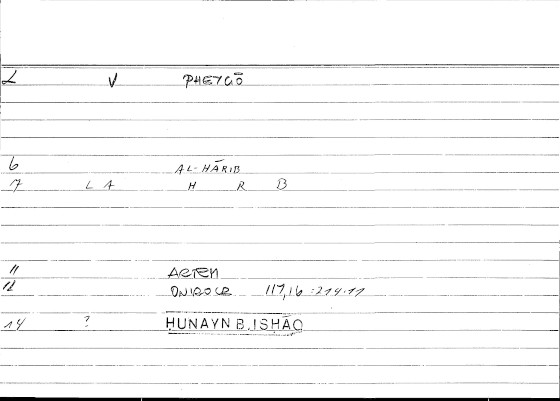 2 V ΦΕΥΓΩ
6 AL-HĀRIB
7 L A H R B
11 ARTEM
12 ONIROCR 117,16 : 214.11
14 ? HUNAYN B. ISHĀQ